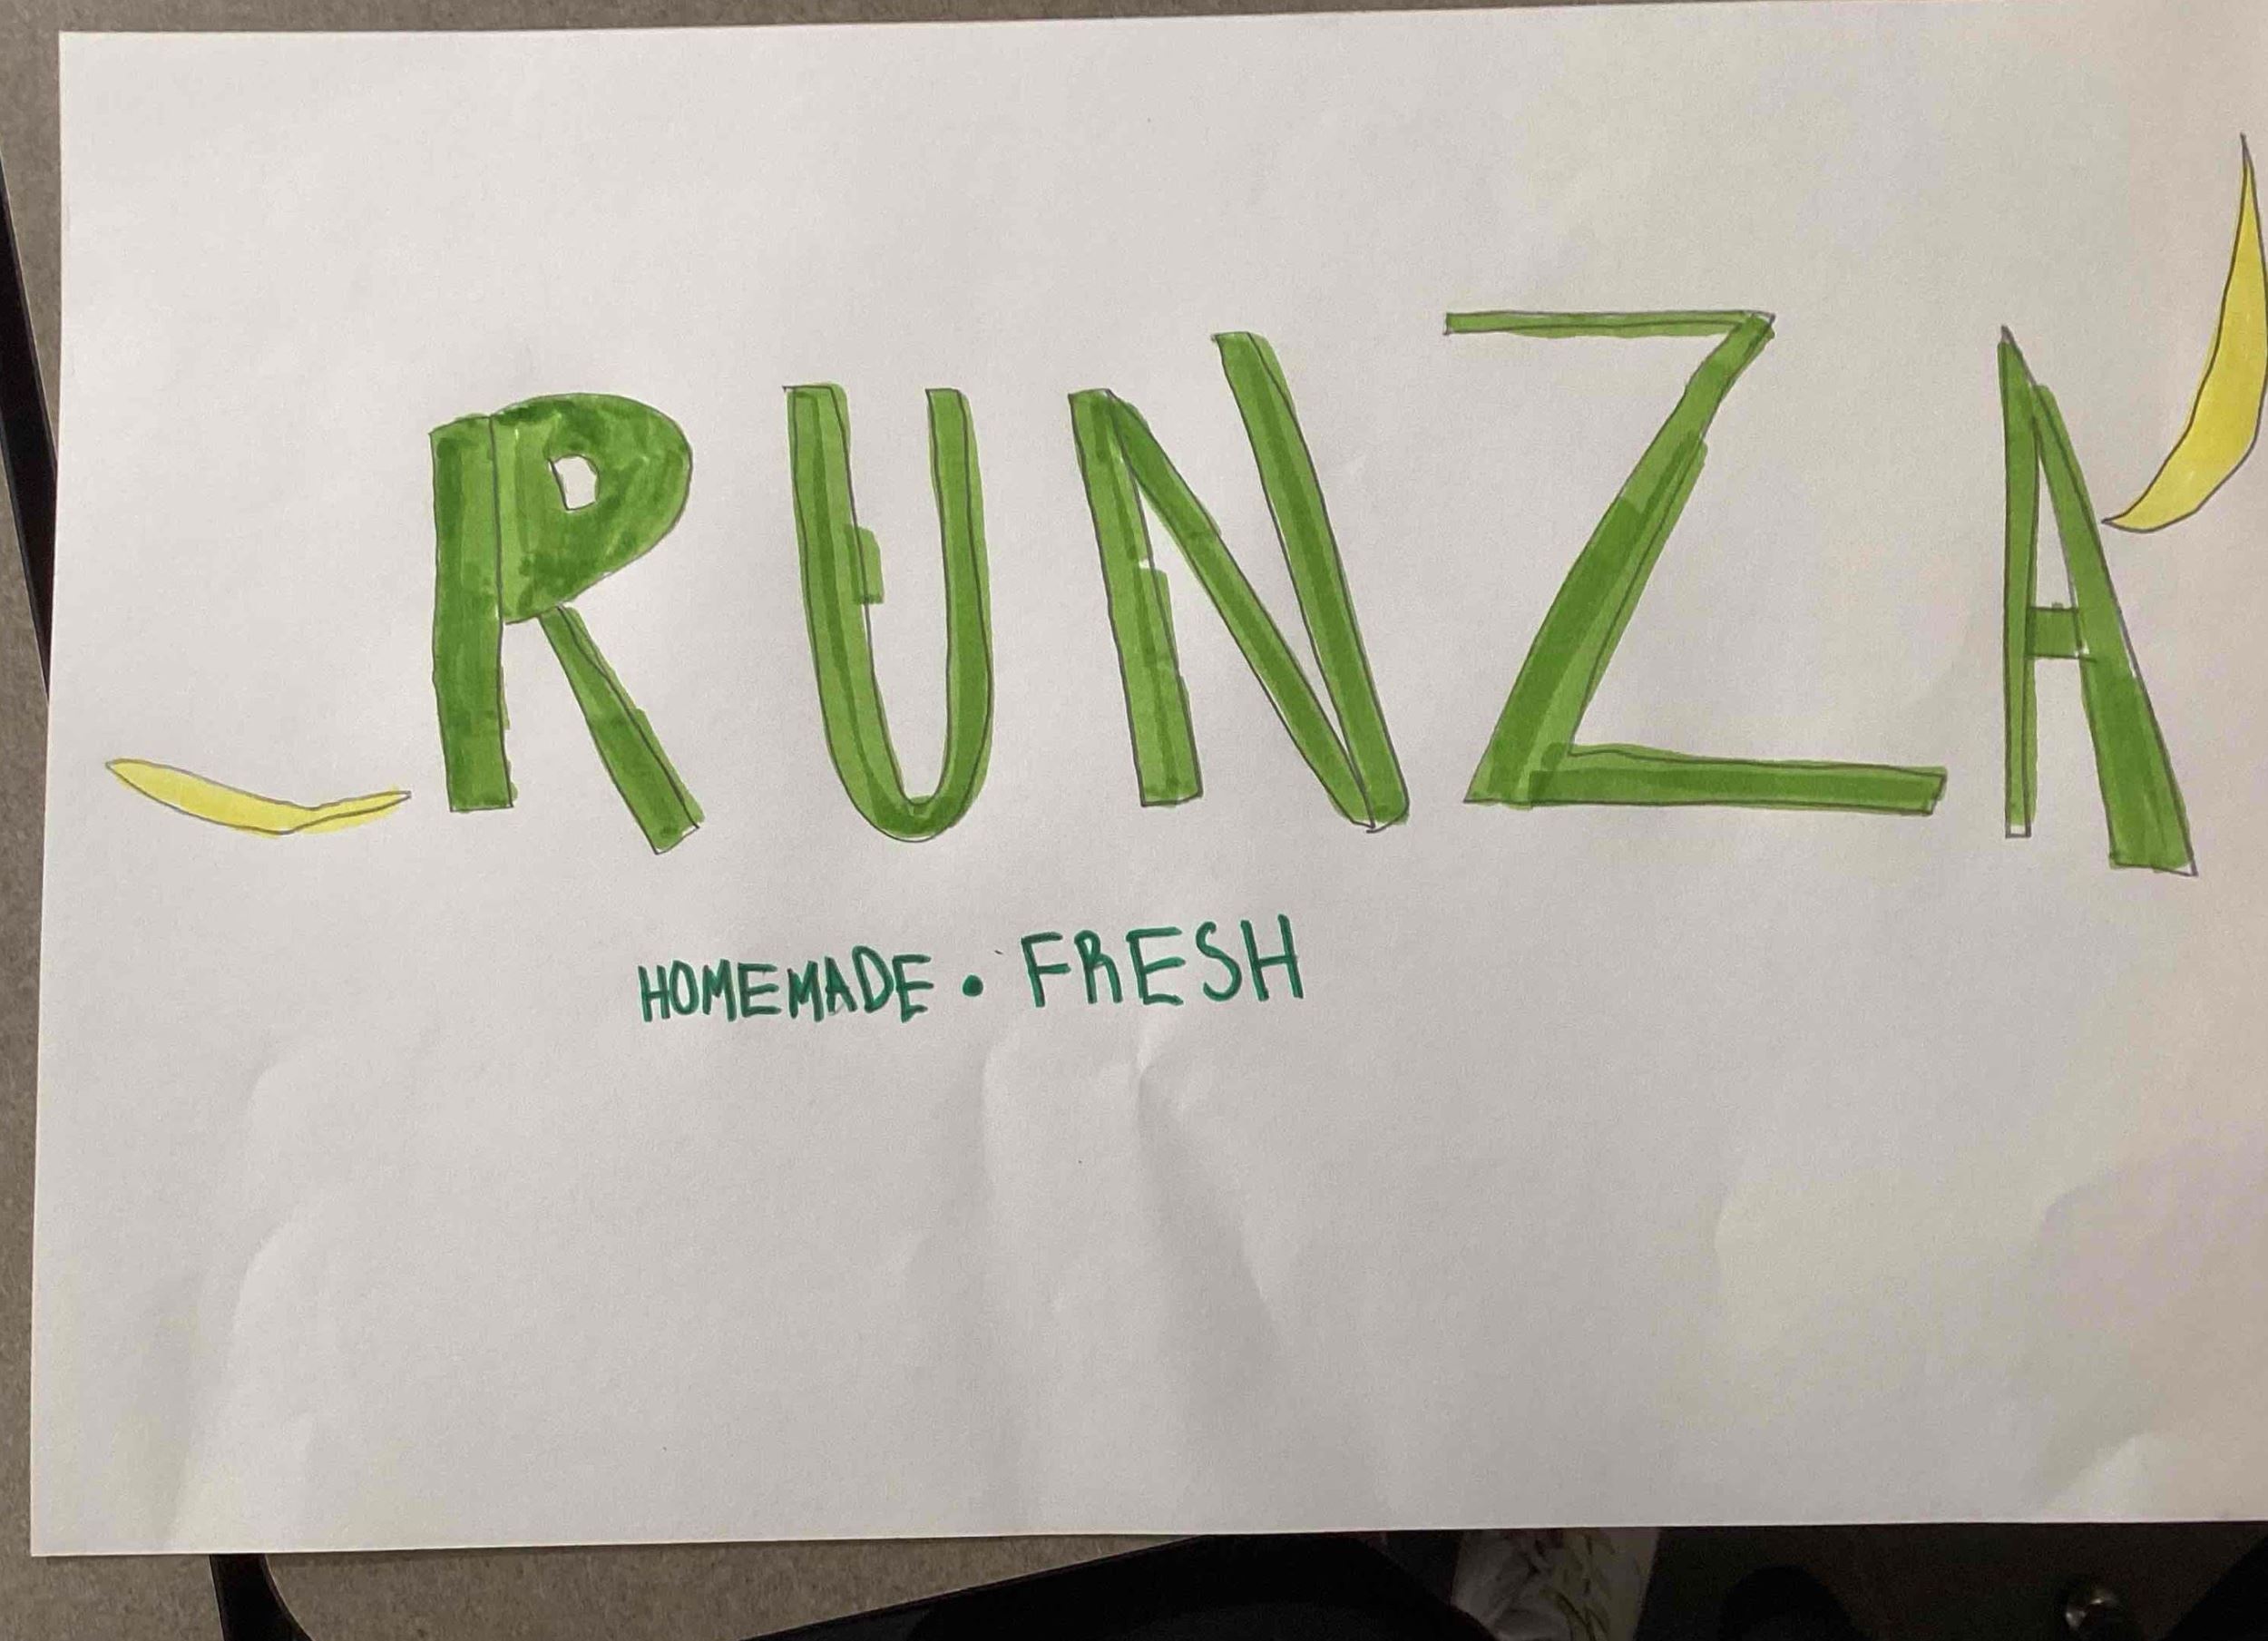 RUNZA
HOMEMADE • FRESH